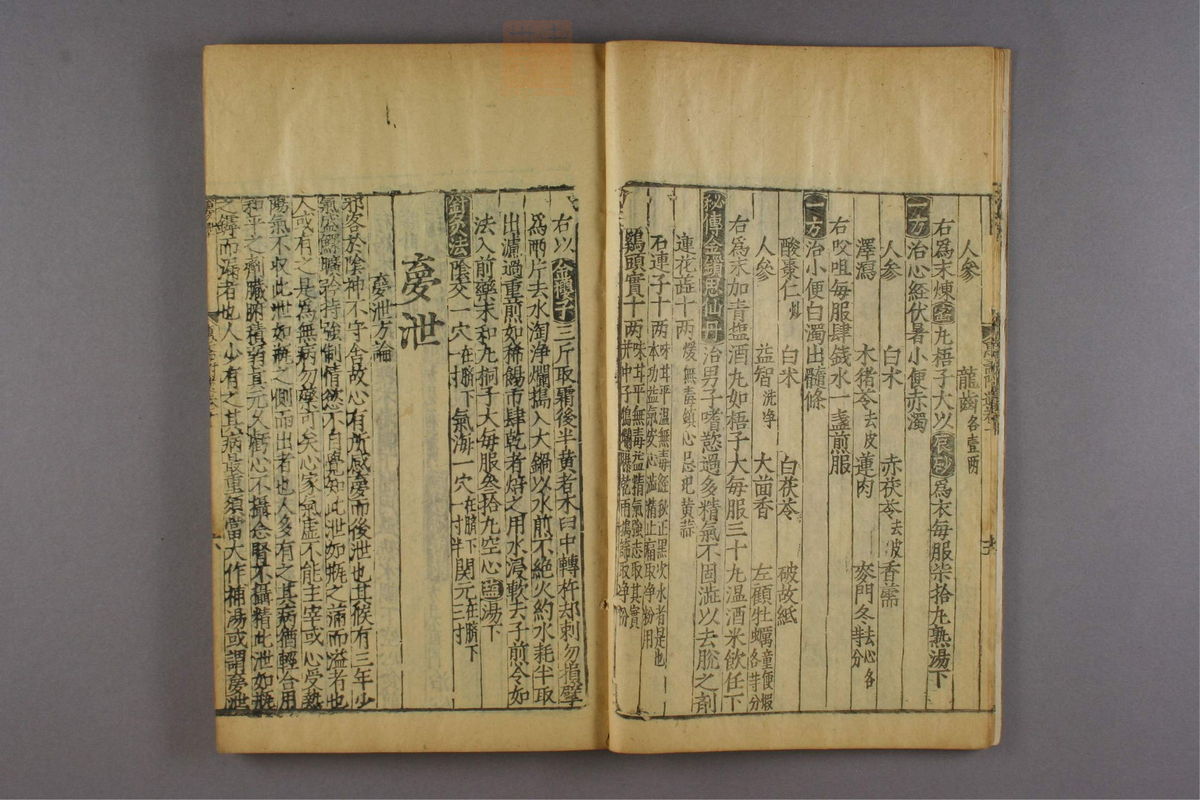 人參　龍齒各壹兩
右爲末煉蜜丸梧子大以辰砂爲衣每服柒拾丸熟湯下
一方治心經伏暑小便赤濁
人參　白朮　赤茯苓去皮　香薷
澤瀉　木猪苓去皮　蓮肉　麥門冬去心各等分
右㕮咀每服肆錢水一盞煎服
一方治小便白濁出髓條
酸棗仁炒　白朮　白茯苓　破故紙
人參　益智洗净　大茴香　左顧牡蠣童便煅各等分
右爲末加青盐酒丸如梧子大每服三十丸温酒米飲任下
秘傳金鎖思仙丹治男子嗜慾過多精氣不固澁以去脫之劑
蓮花蕋十两煖無毒鎮心忌地黄蒜
石連子十两味甘平温無毒經秋正黑沉水者是也本功益氣安心澁精止痛取净粉用
鷄頭實十两味甘平無毒益精氣強志取其實并中子搗爛曝乾再搗篩取净粉
右以金櫻子三斤取霜後半黄者木臼中轉杵却刺勿損擘
爲兩片去水淘浄爛搗入大鍋以水煎不絶火約水耗半取
出濾過重煎如稀餳市肆乾者焙之用水浸軟去子煎令如
法入前藥末和丸桐子大每服叁拾丸空心盐湯下
針灸法陰交一穴在臍下一寸　氣海一穴在臍下一寸半　関元在臍下三寸
夣泄
夣泄方論
邪客於陰神不守舍故心有所感夣而後泄也其候有三年少
氣盛鰥曠矜持強制情慾不自覺知此泄如瓶之滿而溢者也
人或有之是爲無病勿藥可矣心家氣虛不能主宰或心受熱
陽氣不収此泄如瓶之側而出者也人多有之其病猶輕合用
和平之劑臓腑積弱真元久虧心不攝念腎不攝精此泄如瓶
之罅而漏者也人少有之其病最重須當大作補湯或謂夣泄